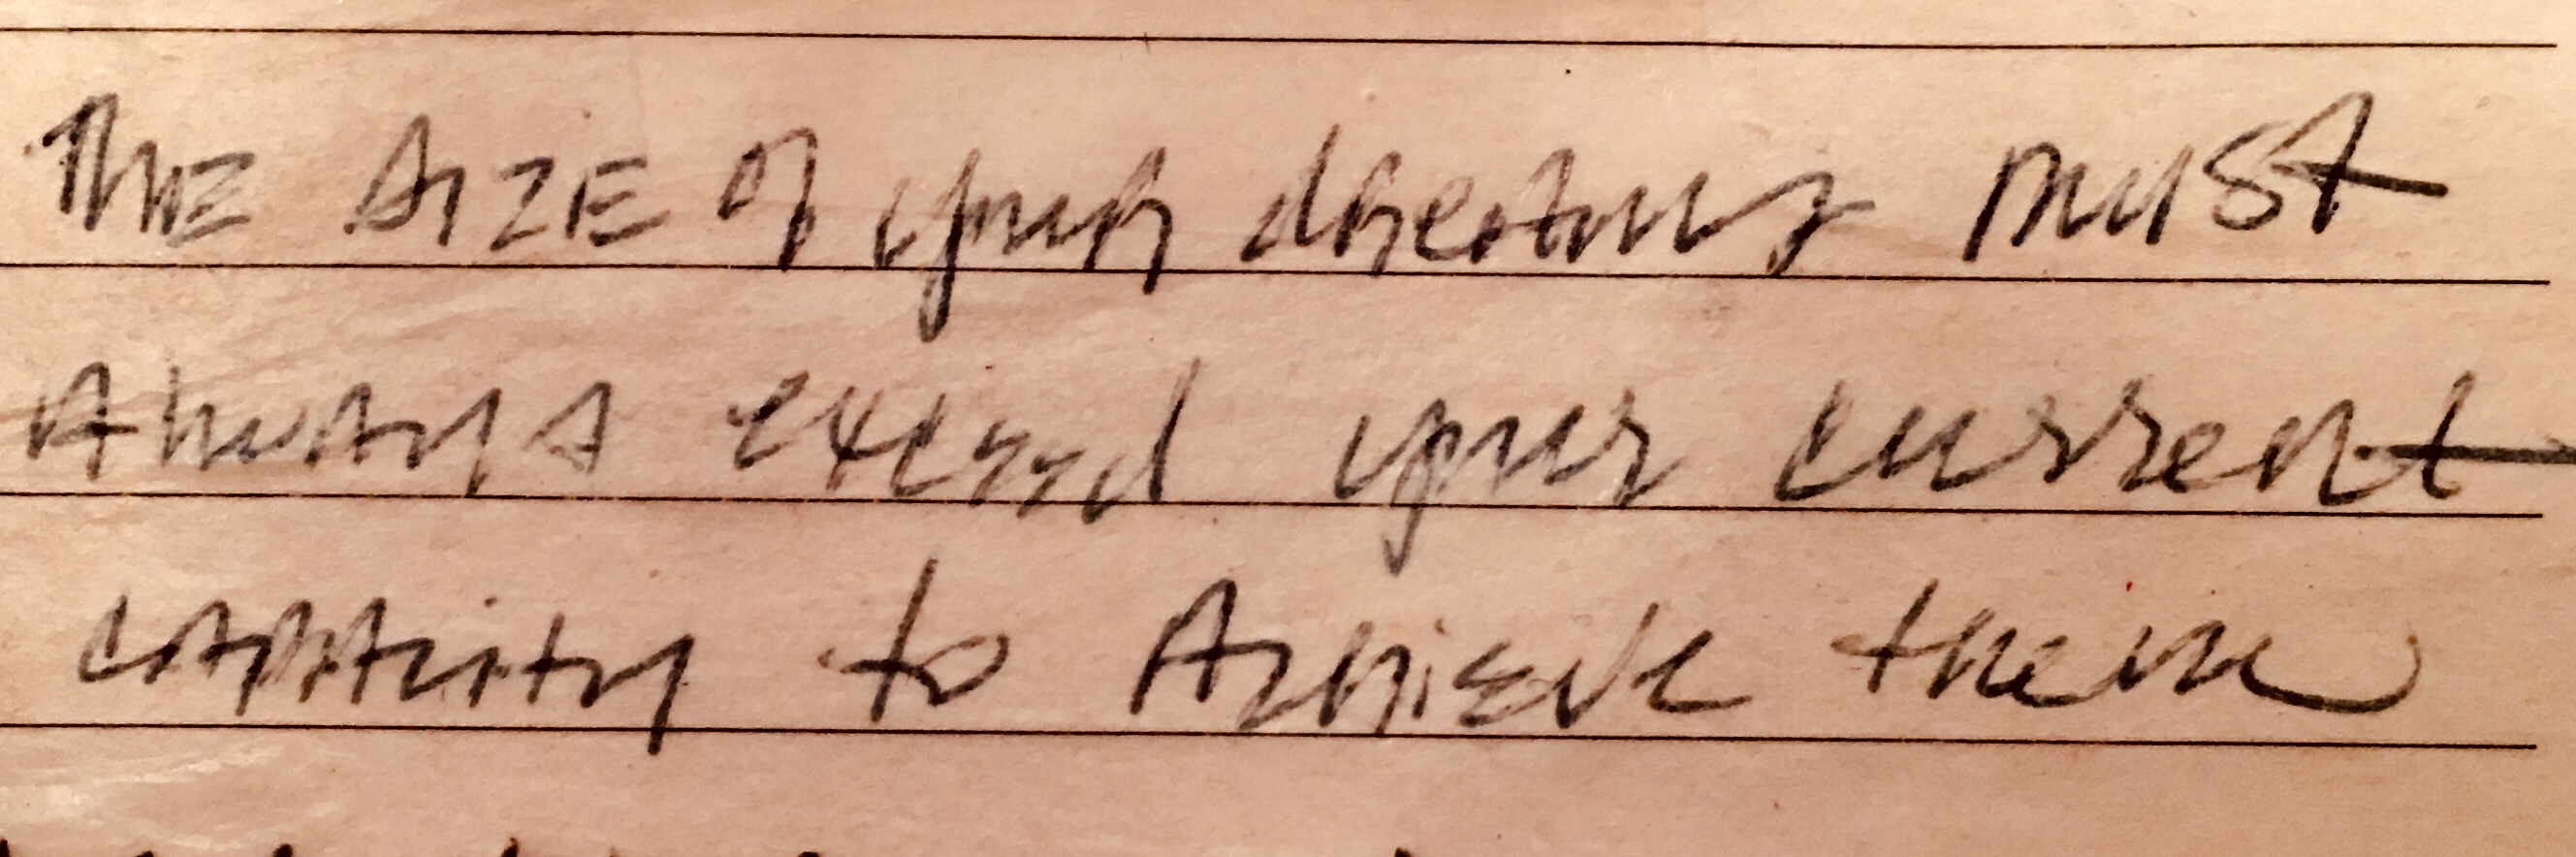 THE SIZE of your dreams must
Always exceed your current
capacity to Achieve them